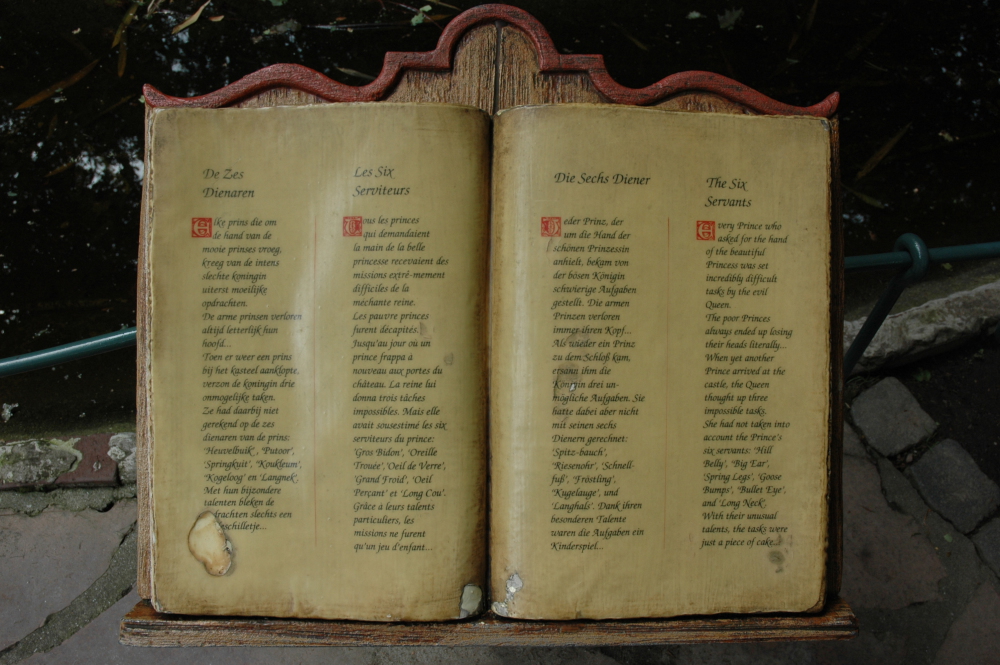 De Zes
Dienaren
Elke prins die om
de hand van de
mooie prinses vroeg,
kreeg van de intens
slechte koningin
uiterst moeilijke
opdrachten.
De arme prinsen verloren
altijd letterlijk hun
hoofd...
Toen er weer een prins
bij het kasteel aanklopte,
verzon de koningin drie
onmogelijke taken.
Ze had daarbij niet
gerekend op de zes
dienaren van de prins:
'Heuvelbuik', 'Putoor',
'Springkuit', 'Koukleum',
'Kogeloog' en 'Langnek'.
Met hun bijzondere
talenten bleken de
slechts een
Les Six
Serviteurs
Tous les princes
qui demandaient
la main de la belle
princesse recevaient des
missions extrê-mement
difficiles de la
méchante reine.
Les pauvre princes
furent décapités.
Jusqu'au jour où un
prince frappa à
nouveau aux portes du
château. La reine lui
donna trois tâches
impossibles. Mais elle
avait sousestimé les six
serviteurs du prince:
'Gros Bidon', 'Oreille
Trouée', 'Oeil de Verre',
'Grand Froid', 'Oeil
Perçant' et 'Long Cou'.
Grâce à leurs talents
particuliers, les
missions ne furent
qu'un jeu d'enfant...
Die Sechs Diener
Jeder Prinz, der
um die Hand der
schönen Prinzessin
anhielt, bekam von
der bösen Königin
schwierige Aufgaben
gestellt. Die armen
Prinzen verloren
immer ihren Kopf...
Als wieder ein Prinz
zu dem Schloß kam,
ersann ihm die
Königin drei un-
mögliche Aufgaben. Sie
hatte dabei aber nicht
mit seinen sechs
Dienern gerechnet:
'Spitz-bauch',
'Riesenohr', 'Schnell-
fuß', 'Fröstling',
'Kugelauge', und
'Langhals'. Dank ihren
besonderen Talente
waren die Aufgaben ein
Kinderspiel...
The Six
Servants
Every Prince who
asked for the hand
of the beautiful
Princess was set
incredibly difficult
tasks by the evil
Queen.
The poor Princes
always ended up losing
their heads literally...
When yet another
Prince arrived at the
castle, the Queen
thought up three
impossible tasks.
She had not taken into
account the Prince's
six servants: 'Hill
Belly', 'Big Ear',
'Spring Legs', 'Goose
Bumps', 'Bullet Eye',
and 'Long Neck'.
With their unusual
talents, the tasks were
just a piece of cake...